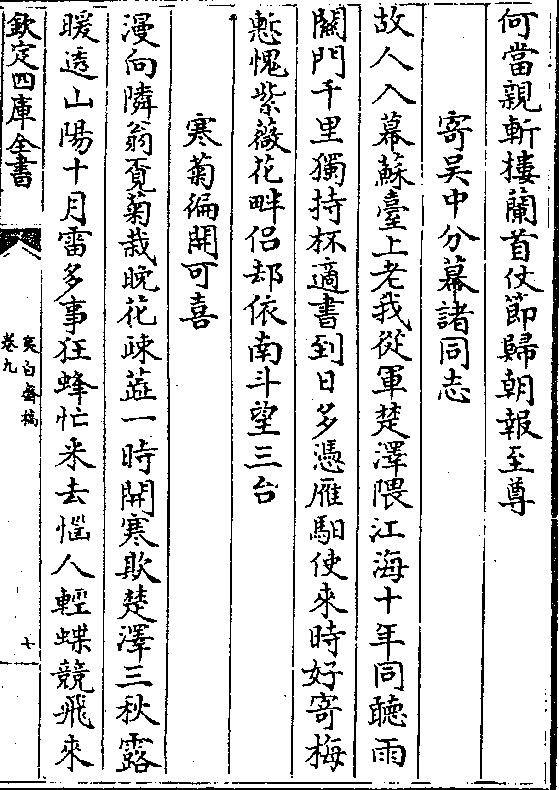 何當親斬樓蘭首仗節歸朝報至尊
寄吴中分幕諸同志
故人入幕蘇臺上老我從軍楚澤隈江海十年同聽雨
關門千里獨持杯適書到日多憑雁馹使來時好寄梅
慙愧紫薇花畔侶却依南斗望三台
寒菊徧開可喜
漫向隣翁覔菊栽晩花疎蘂一時開寒欺楚澤三秋露
暖透山陽十月雷多事狂蜂忙未去惱人輕蝶競飛來
欽定四庫全書
夷白齋稿
卷九
七